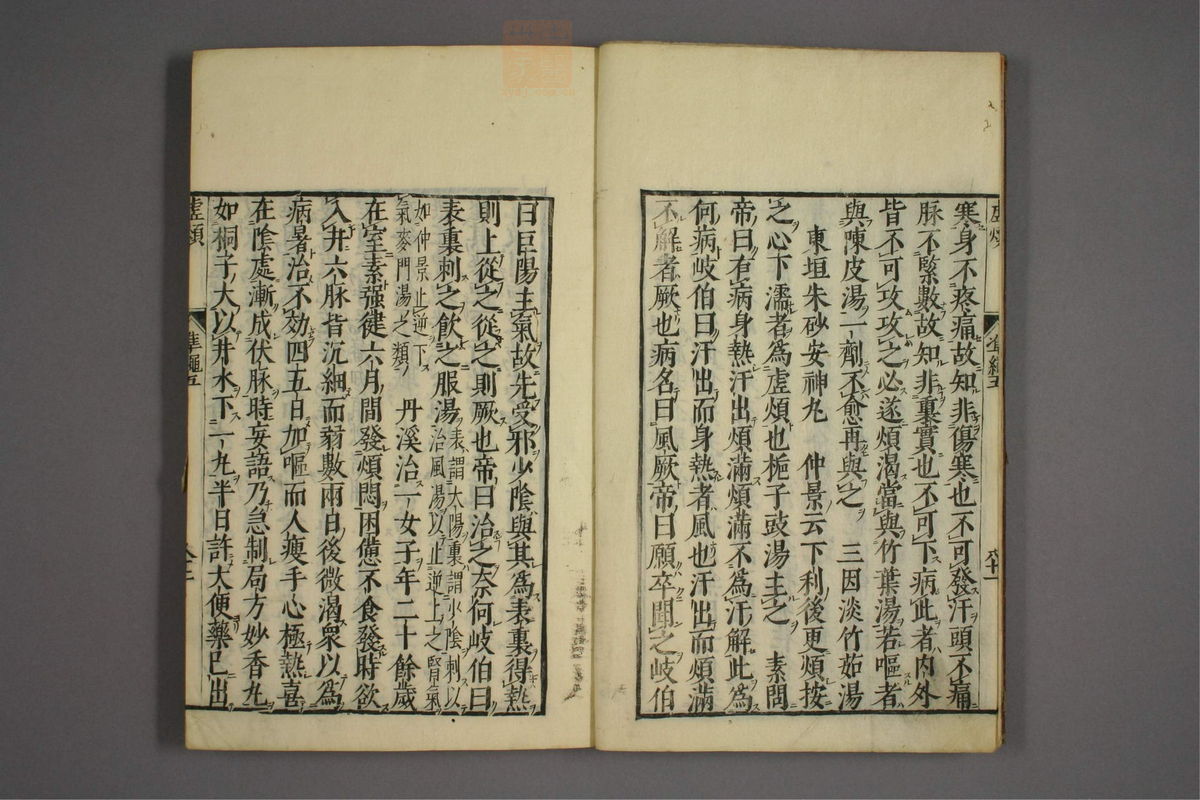 虛煩
準繩五
六十一
寒身不疼痛故知非傷寒也不可發汗頭不痛
脉不緊數故知非裏實也不可下病此者內外
皆不可攻攻之必遂煩渴當與竹葉湯若嘔者
與陳皮湯一劑不愈再與之　三因淡竹茹湯
東垣朱砂安神丸　仲景云下利後更煩按
之心下濡者為虛煩也梔子豉湯主之　素問
帝曰有病身熱汗出煩滿煩滿不為汗解此為
何病岐伯曰汗出而身熱者風也汗出而煩滿
不解者厥也病名曰風厥帝曰願卒聞之岐伯
曰巨陽主氣故先受邪少陰與其為表裏得熱
則上從之從之則厥也帝曰治之奈何岐伯曰
表裏刺之飲之服湯表謂太陽裏謂少陰刺以治風湯以止逆上之腎氣
如仲景止逆下氣麥門湯之類　丹溪治一女子年二十餘歲
在室素强健六月間發煩悶困憊不食發時欲
入井六脉皆沉細而弱數兩日後微渴衆以為
病暑治不効四五日加嘔而人瘦手心極熱喜
在陰處漸成伏脉時妄語乃急制局方妙香丸
如桐子大以井水下一丸半日許大便藥已出
虛煩
準繩五